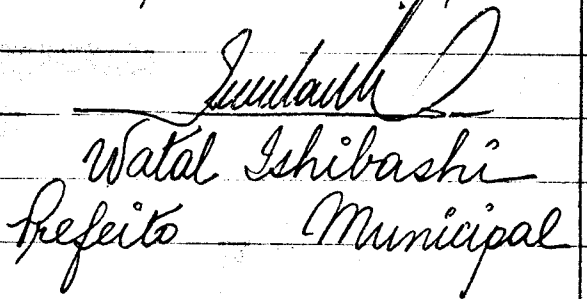 Watal Ishibashi
Prefeito Municipal